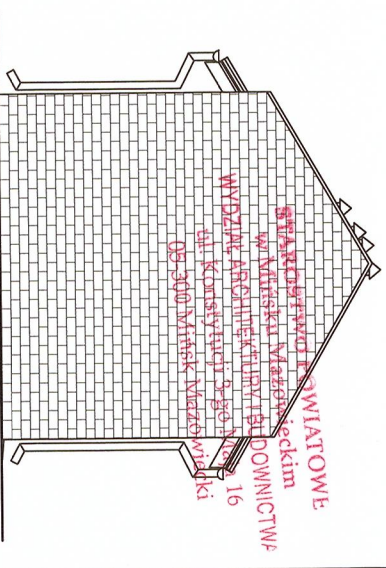 STAROSTWO POWIATOWE
w Mińsku Mazowieckim
WYDZIAŁ ARCHITEKTURY I BUDOWNICTWA
ul. Konstytucji 3-go Maja 16
05-300 Mińsk Mazowiecki